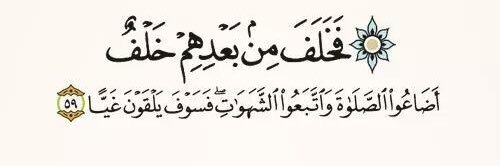 فَخَلَفَ مِنۢ بَعۡدِهِمۡ خَلۡفٌ
أَضَاعُواْ ٱلصَّلَوٰةَ وَٱتَّبَعُواْ ٱلشَّهَوَٰتِۖ فَسَوۡفَ يَلۡقَوۡنَ غَيًّا ٥٩